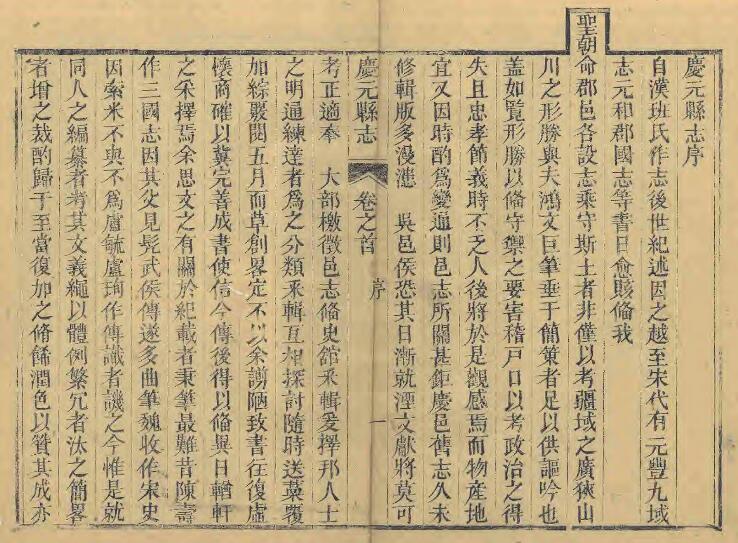 慶元縣志序
自漢班氏作志後世紀述因之越至宋代有元豐九域
志元和郡國志等書日愈賅備我
聖朝命郡邑各設志乘守斯土者非僅以考疆域之廣狹山
川之形勝與夫鴻文巨筆垂于簡策者足以供謳吟也
盖如覽形勝以備守禦之要害稽戸口以考政治之得
失且忠孝節義時不乏人後將於是觀感焉而物産地
宜又因時酌爲變通則邑志所關甚鉅慶邑舊志久未
修輯版多漫漶　吳邑侯恐其日漸就湮文獻將莫可
慶元縣志　卷之首　序　一
考正適奉　大部檄徵邑志俻史舘釆輯爰擇邦人士
之明通練達者爲之分類釆輯互相探討隨時送藁覆
加綜覈閱五月而草創畧定不以余謭陋致書往復虛
懷商確以冀完善成書使信今傳後得以俻異日輶軒
之采擇焉余思文之有關於紀載者秉筆最難昔陳壽
作三國志因其父見髡武侯傳遂多曲筆魏收作宋史
因索米不與不爲盧毓盧珣作傳識者譏之今惟是就
同人之編纂者考其文義繩以體例繁冗者汰之簡畧
者增之裁酌歸于至當復加之脩餙潤色以贊其成亦